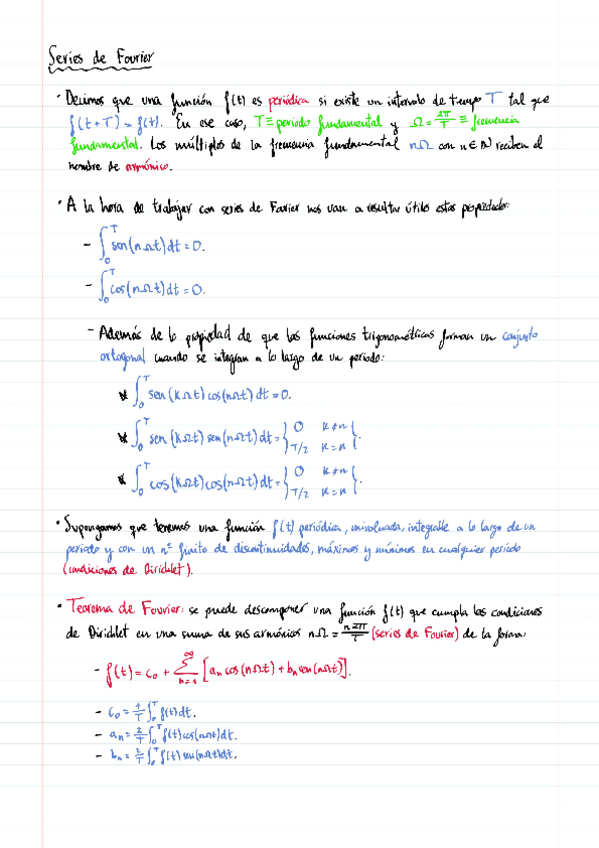 Series de Fourier
· Decimos que una función f(t) es periódica si existe un intervalo de tiempo T tal que
f(t+T) = f(t). En ese caso, T ≡ periodo fundamental y Ω = 2π/T ≡ frecuencia
fundamental. Los múltiplos de la frecuencia fundamental nΩ con n ∈ ℕ reciben el
nombre de armónico.
· A la hora de trabajar con series de Fourier nos van a resultar útiles estas propiedades:
- ∫₀ᵀ sen(nΩt)dt = 0.
- ∫₀ᵀ cos(nΩt)dt = 0.
- Además de la propiedad de que las funciones trigonométricas forman un conjunto
ortogonal cuando se integran a lo largo de un periodo:
* ∫₀ᵀ sen(kΩt)cos(nΩt)dt = 0.
* ∫₀ᵀ sen(kΩt)sen(nΩt)dt = { 0 k≠n, T/2 k=n }.
* ∫₀ᵀ cos(kΩt)cos(nΩt)dt = { 0 k≠n, T/2 k=n }.
· Supongamos que tenemos una función f(t) periódica, univaluada, integrable a lo largo de un
periodo y con un nº finito de discontinuidades, máximos y mínimos en cualquier periodo
(condiciones de Dirichlet).
· Teorema de Fourier: se puede descomponer una función f(t) que cumpla las condiciones
de Dirichlet en una suma de sus armónicos nΩ = n2π/T (series de Fourier) de la forma:
- f(t) = c₀ + ∑_{n=1}^{∞} [aₙ cos(nΩt) + bₙ sen(nΩt)].
- c₀ = 1/T ∫₀ᵀ f(t)dt.
- aₙ = 2/T ∫₀ᵀ f(t)cos(nΩt)dt.
- bₙ = 2/T ∫₀ᵀ f(t)sen(nΩt)dt.